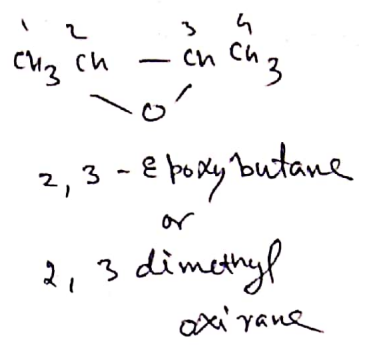 1 2 3 4
CH3 CH — CH CH3
O
2, 3 - Epoxybutane
or
2, 3 dimethyl
oxirane